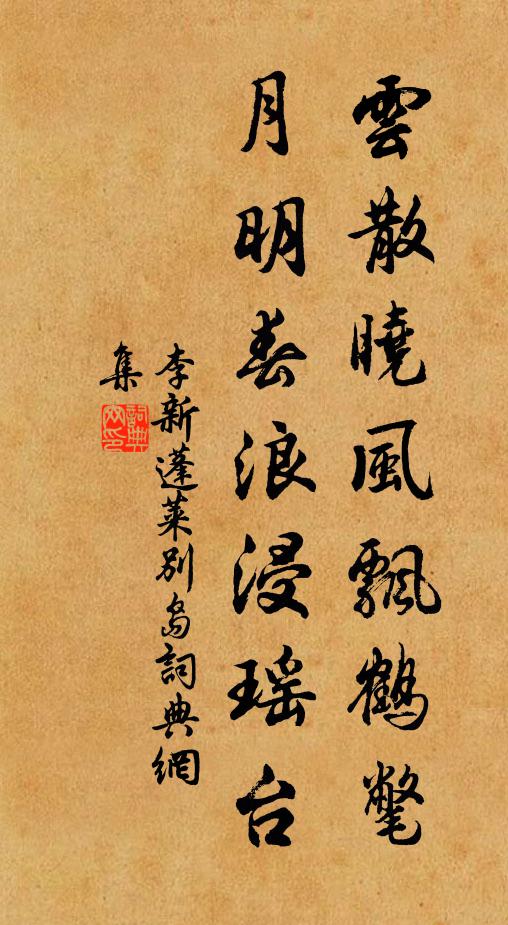 雲散曉風飄鶴氅
月明春浪浸瑶台
李新蓬莱别島詞典網
集
詞典網印